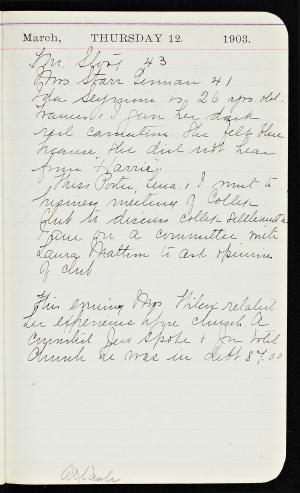 March, THURSDAY 12. 1903.
Mr. 43
Mrs. Starr 41
Ida Seymour is 26 yrs. old.
Frances & I gave her dark
red carnations. She felt blue
because she did not hear
from "Harrie"
Miss Porter, Lena, & I went to
business meeting of College
Club to discuss College Settlement
I am on a committee with
Laura to ask opinion
of club
This evening Mrs. Wilcox related
her experience before church. A
converted Jew spoke & Mr.
Church he was in debt $7.00